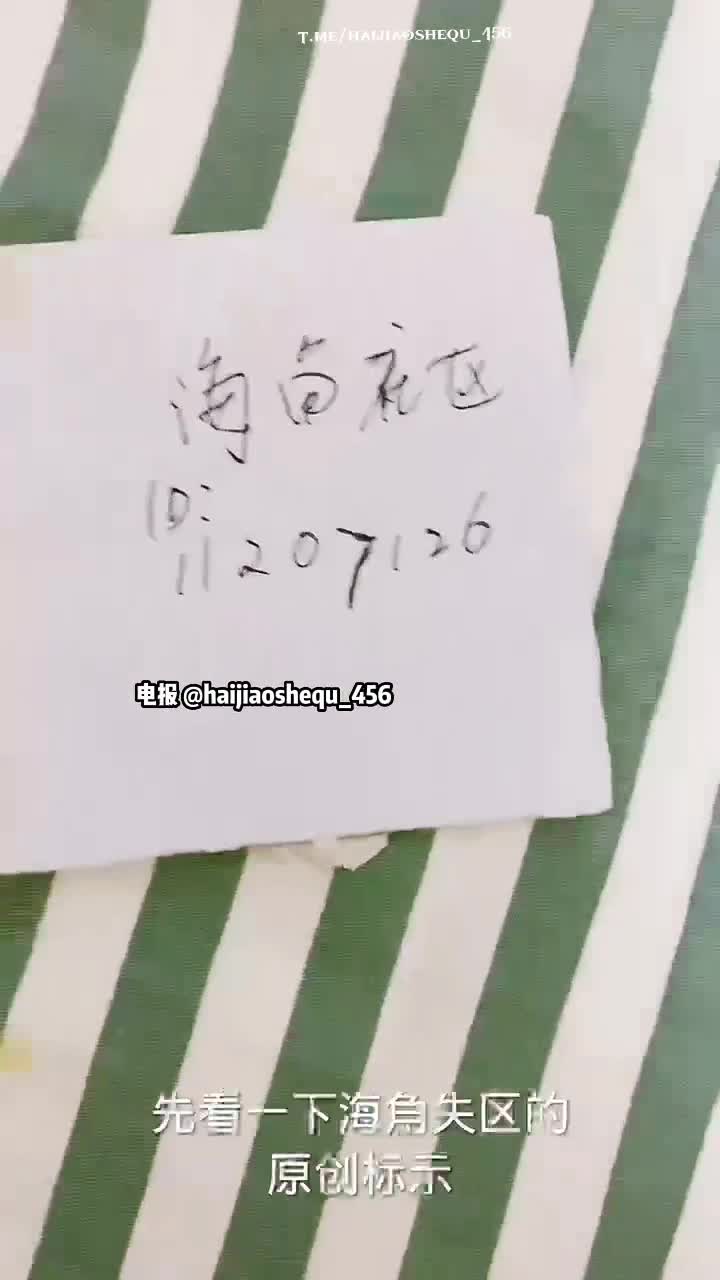 T.ME/HAIJIAOSHEQU_456
海角社区
ID:
11207126
电报 @haijiaoshequ_456
先看一下海角失区的
原创标示